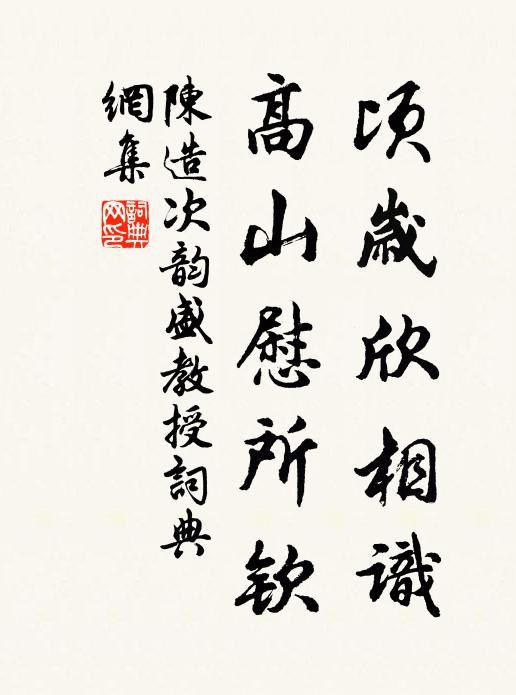 頃歲欣相識
高山慰所欽
陳造次韵盛教授詞典
網集
詞典
网印